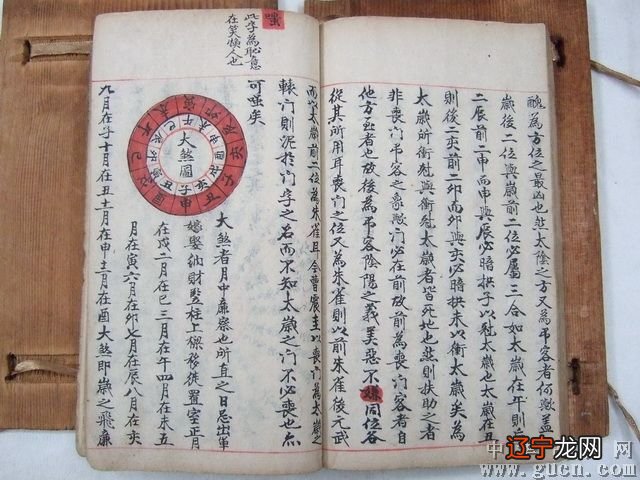 醜為方位之最凶也然太陰之方又為弔客者何歟蓋
歲後二位與歲前二位必屬三合如太歲在午則後
二辰前二申而申與辰必暗拱子以尅太歲也太歲在丑
則後二亥前二卯而卯與亥必暗拱未以衝太歲矣為
太歲所衝尅與衝尅太歲者皆死地也然則扶助之者
非喪門弔客之象歟門必在前故前為喪門客者自
他方至者也故後為弔客陰陽之義美惡不嫌同位各
從其所用耳喪門之位又為朱雀則以前朱雀後元武
而以太歲前二位為朱雀且今曹震圭以喪門為太歲之
轅门則泥於门字之名而不知太歲之门不必喪也亦
可嗤矣
嗤
此字為恥意
在笑人也
大煞圖
大煞者月中廉察也所直之日忌出軍
嫁娶納財豎柱上樑移徙置室正月
在戌二月在巳三月在午四月在未五
月在寅六月在卯七月在辰八月在亥
九月在子十月在丑十一月在申十二月在酉大煞即歲之飛廉
辽宁龙网
www.gucn.com